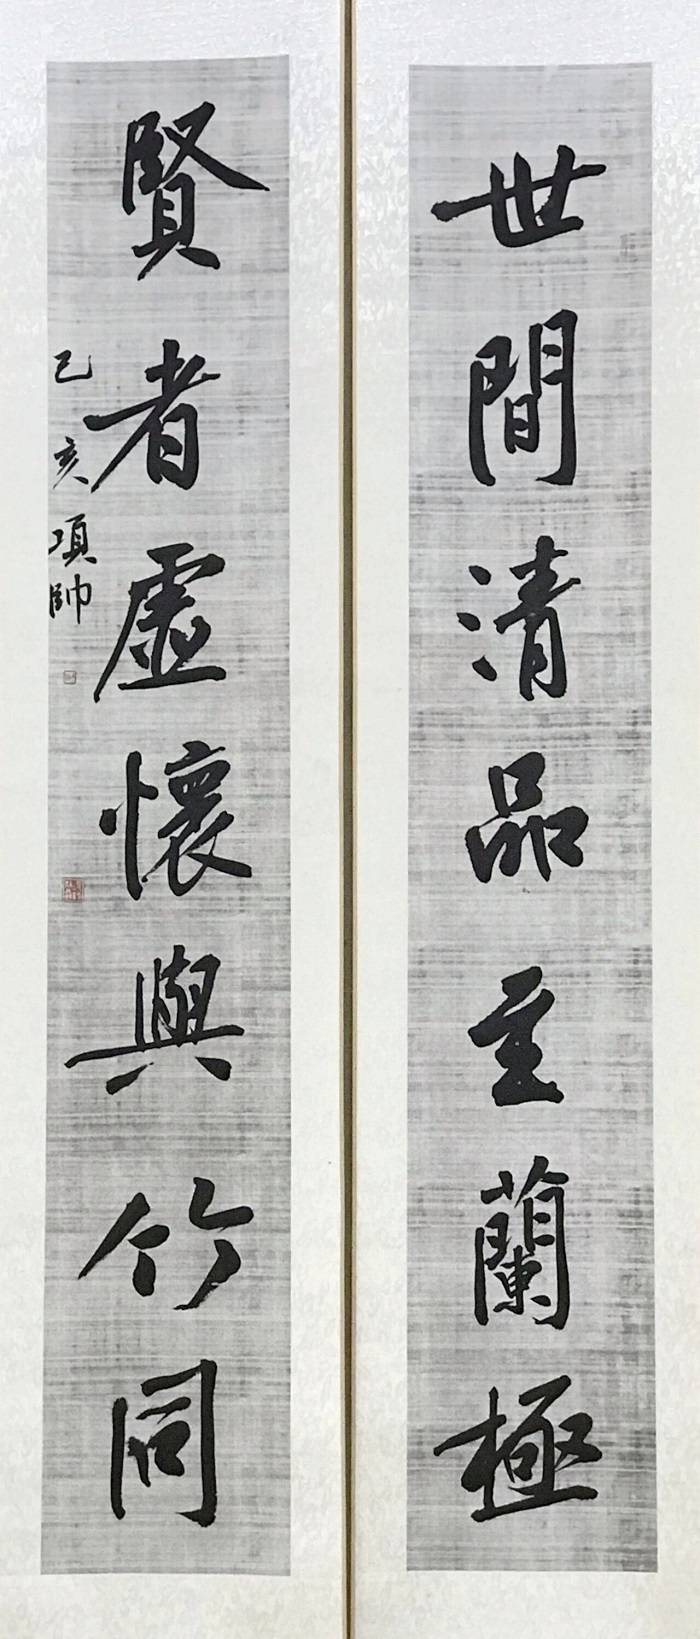 世間清品至蘭極
賢者虛懷與竹同
己亥項帥